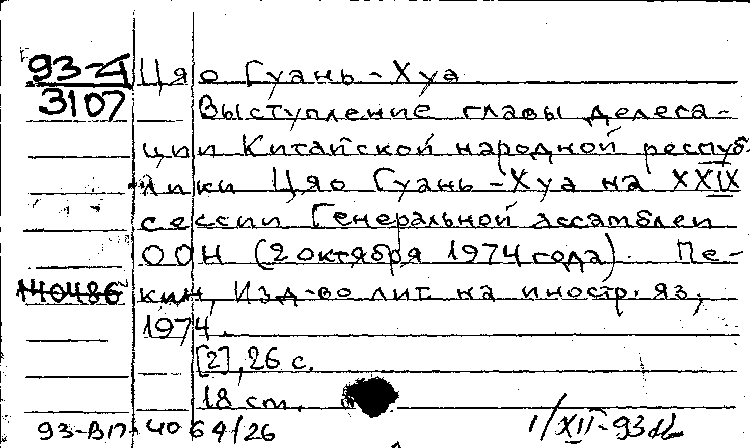 93-4 Цяо Гуань-Хуа
3107 Выступление главы делега-
ции Китайской народной респуб-
лики Цяо Гуань-Хуа на XXIX
сессии Генеральной ассамблеи
ООН (2 октября 1974 года). Пе-
140486 кин, Изд-во лит. на иностр. яз.,
1974.
[2], 26 с.
18 см.
93-ВП-4064/26 1/XII-93